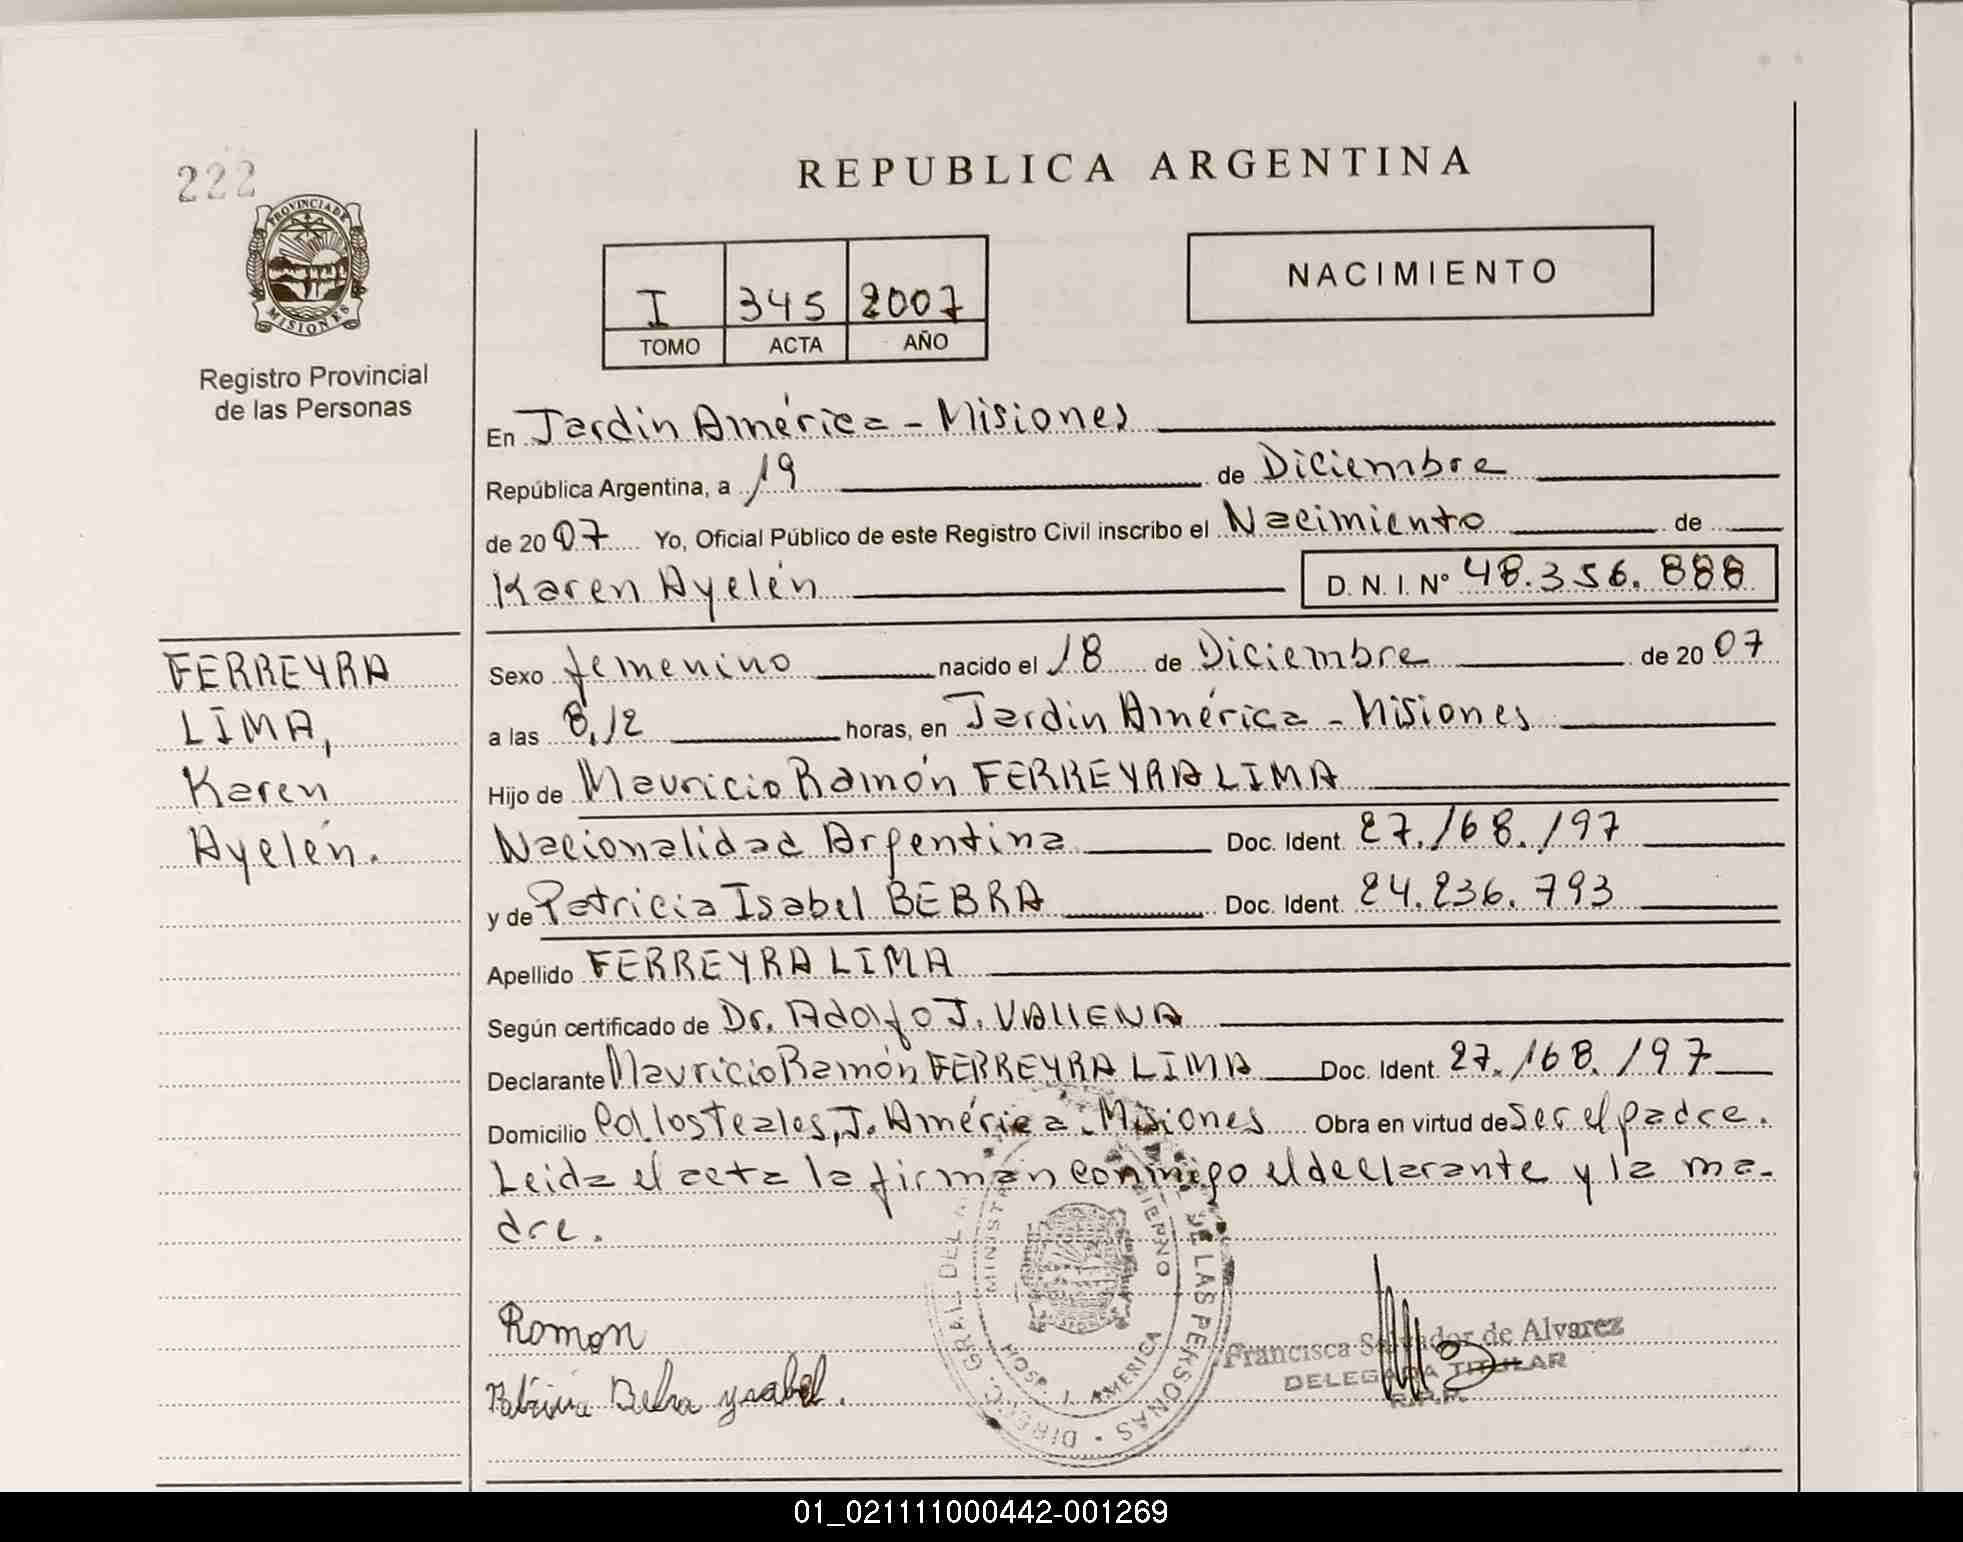 222
PROVINCIA DE
MISIONES
Registro Provincial
de las Personas
REPUBLICA ARGENTINA
I 345 2007
TOMO ACTA AÑO
NACIMIENTO
En Jardín América - Misiones
República Argentina, a 19 de Diciembre
de 2007 Yo, Oficial Público de este Registro Civil inscribo el Nacimiento de
Karen Ayelén D.N.I. Nº 48.356.888
FERREYRA
LIMA,
Karen
Ayelén.
Sexo femenino nacido el 18 de Diciembre de 2007
a las 8,12 horas, en Jardín América - Misiones
Hijo de Mauricio Ramón FERREYRA LIMA
Nacionalidad Argentina Doc. Ident. 27.168.197
y de Patricia Isabel BEBRA Doc. Ident. 24.236.793
Apellido FERREYRA LIMA
Según certificado de Dr. Adolfo J. VALLENA
Declarante Mauricio Ramón FERREYRA LIMA Doc. Ident. 27.168.197
Domicilio Col. los Teales, J. América - Misiones Obra en virtud de ser el padre.
Leida el acta la firman conmigo el declarante y la ma-
dre.
Ramon
Patricia Bebra ysabel.
DIREC. GRAL. DEL DE LAS PERSONAS
HOSP. J. AMERICA
Francisca Salvador de Alvarez
DELEGADA TITULAR
R.P.P.
01_021111000442-001269